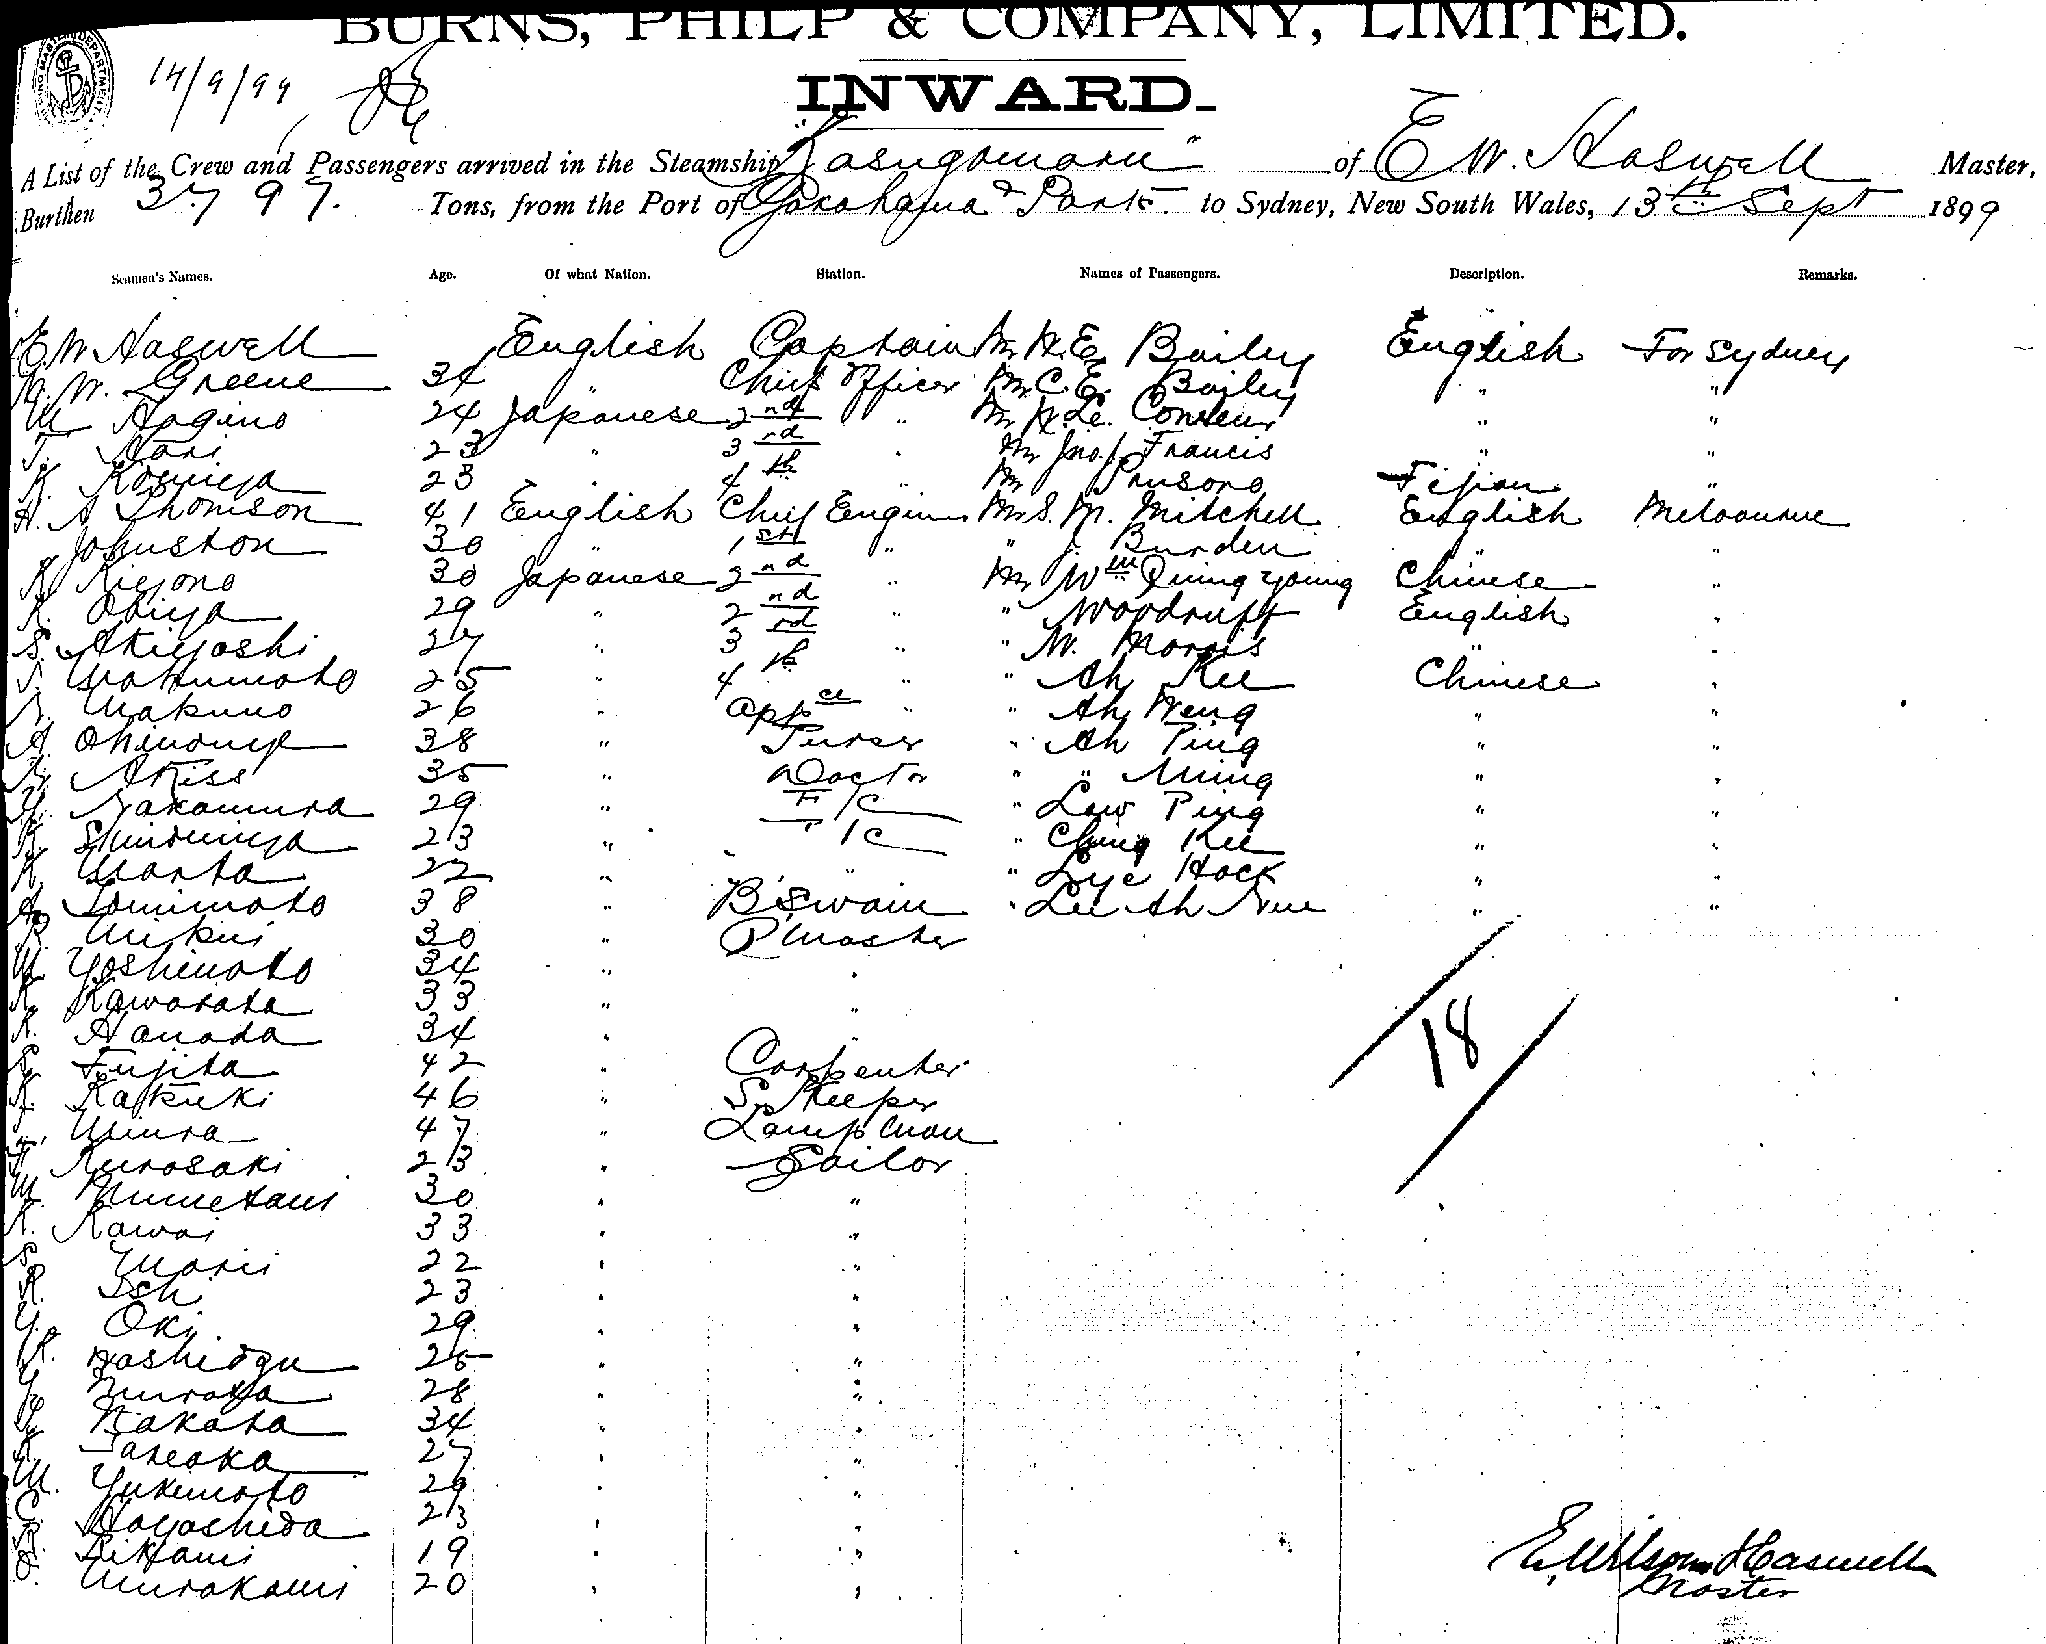 BURNS, PHILP & COMPANY, LIMITED.
14/9/99
INWARD.
A List of the Crew and Passengers arrived in the Steamship "Kasugamaru" of E W. Haswell Master,
Burthen 3797. Tons, from the Port of Yokohama & Ports to Sydney, New South Wales, 13th Sept 1899
Seamen's Names. Age. Of what Nation. Station. Names of Passengers. Description. Remarks.
E W Haswell English Captain Mr H. E. Bailey English For Sydney
W. Greene 34 " Chief Officer Mr C. E. Bailey " "
Hagino 24 Japanese 2nd " Mr "  "
T. Hori 23 " 3rd " Mr Jno. Francis " "
K. 23 " 4th " Mr Fijian "
H. A Thomson 41 English Chief Engin Mrs. M. Mitchell English Melbourne
Johnston 30 " 1st " " J. Burden " "
K Kiyono 30 Japanese 2nd " Mr Wm Quing Young Chinese "
K. 29 " 2nd " " Woodruff English "
S. Akiyoshi 27 " 3rd " " W. Morris " "
25 " 4th " " Ah Kee Chinese "
Makuno 26 " appce " " Ah Weng " "
A. 38 " Purser " Ah Ping " "
35 " Doctor " " Ming " "
Nakamura 29 " F/C " Low Ping " "
K 23 " /C " Ching Kee " "
K 22 " " " Lye Hock " "
Tomimoto 38 " B'swain " Lee Ah "  "
Mikui 30 " Q Master
Yoshimoto 34 " "
K Kawarata 33 " "
K. Hanada 34 " "
Fujita 42 " Carpenter
K. Kakuki 46 " S. Keeper
Miura 47 " Lampman
Kurosaki 23 " Sailor
M. Umetani 30 " "
K. Kawai 33 " "
S. Morii 22 " "
K. Ish 23 " "
Y. Oki 29 " "
K. 25 " "
Y. Murata 28 " "
Y. Nakata 34 " "
K Taneoka 27 " "
M. Yukimoto 29 " "
C. Hayashida 23 " "
19 " "
Murakami 20 " "
18
E. Wilson Haswell
Master